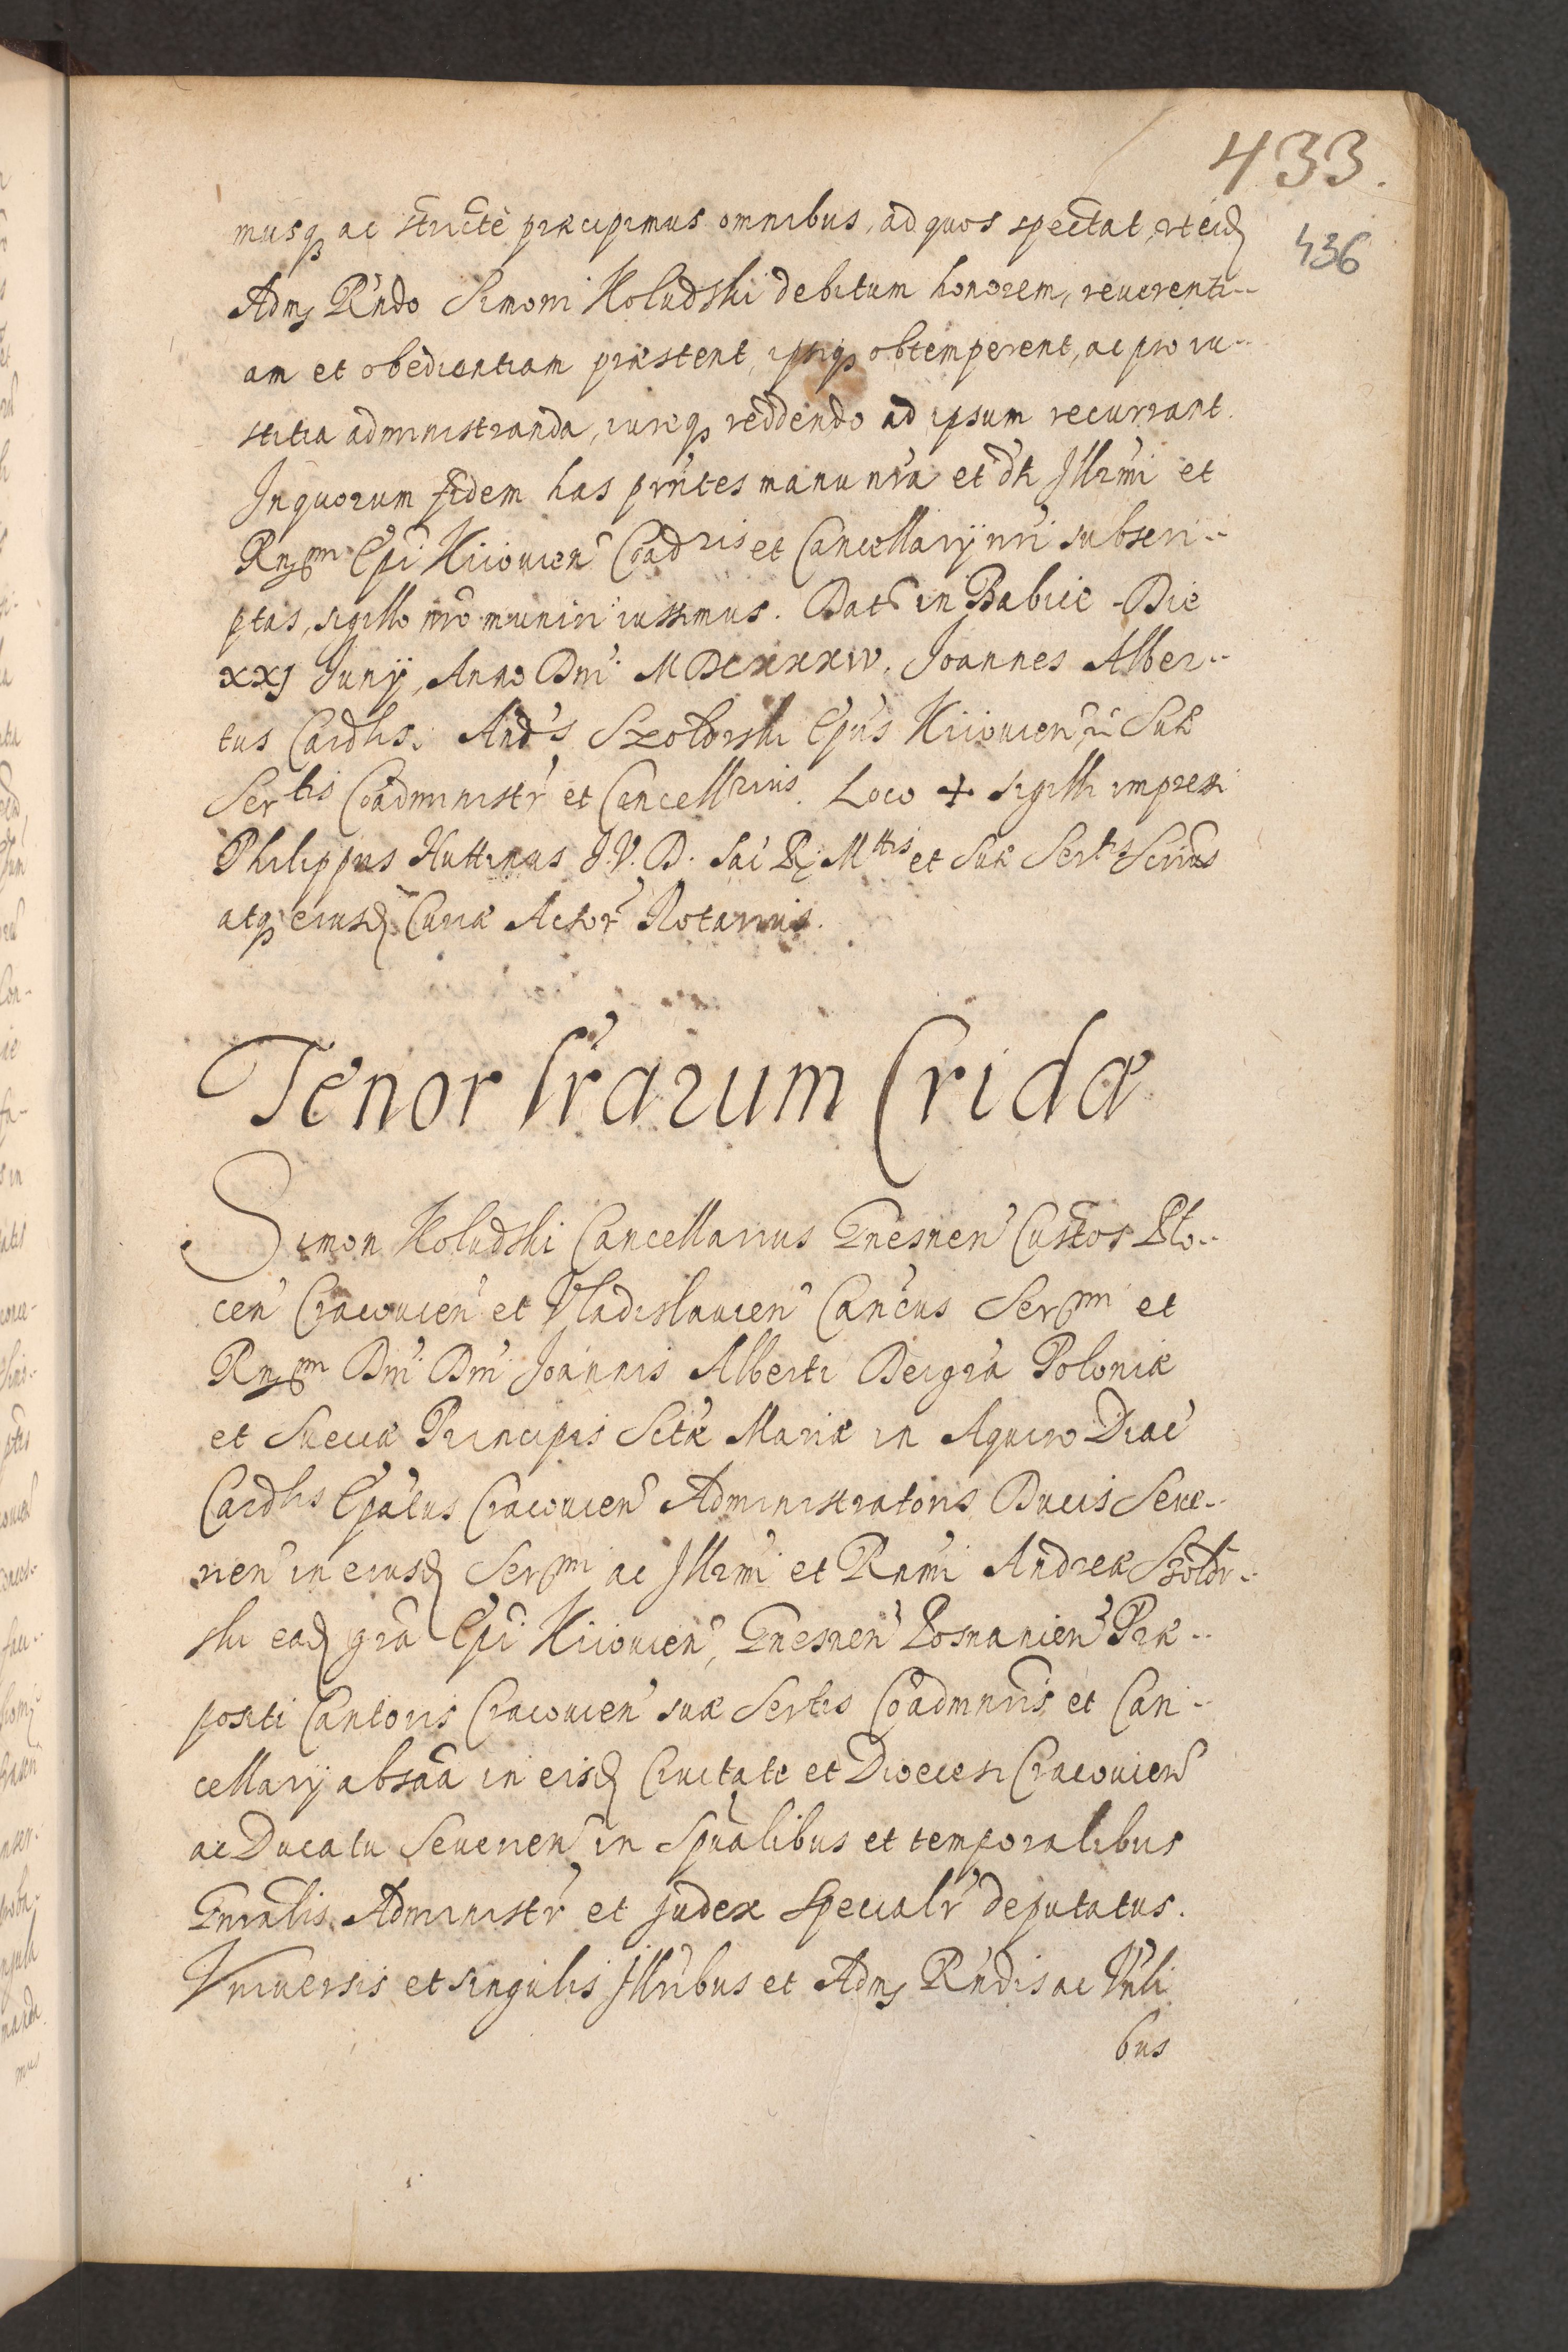 433.
436
musq ac strictè præcipimus omnibus, ad quos spectat, ut eid
Adm Rńdo Simoni Koludzki debitum honorem, reuerenti-
am et obedientiam præstent, ipsiq obtemperent, ac pro iu-
stitia administranda, iuriq reddendo ad ipsum recurrant.
In quorum fidem has pr̃ntes manu nr̃a et dh Illr̃mi et
Rn̄dmi Ep̃i Kiiouien Coadris et Cancellarij nr̃i subscri-
ptas, sigillo nr̃o muniri iussimus. Dat in Babice Die
XXJ Junij, Anno Dn̄i MDCXXXIV. Joannes Alber-
tus Cardlis. Andś Szoldrski Ep̃us Kiiouien Suæ
Sertis Coadministr et Cancellrius. Loco + sigilli impressi
Philippus Huttinus J.V.D. Sac R. Mttis et Suæ Sertis Scrius
atq eiusd Curiæ Actor Notarius.
Tenor lr̃arum Cridæ
Simon Koludzki Cancellarius Gnesnen Custos Plo-
cen Cracouien et Vladislauien Canćus Sermi et
Rndmi Dn̄i Dn̄i Joannis Alberti Dei grã Poloniæ
et Sueciæ Principis Sctæ Mariæ in Aquiro Diac
Cardlis Ep̃atus Cracouien Administratoris Ducis Seue-
rien in eiusd Sermi ac Illr̃mi et Rn̄mi Andreæ Szoldr-
ski ead grã Ep̃i Kiiouien, Gnesnen Posnanien Præ-
positi Cantoris Cracouien suæ Sertis Coadmnris et Can-
cellarij absã in eisd Ciuitate et Dioecesi Cracouien
ac Ducatu Seuerien in Spũalibus et temporalibus
Gnralis Administr et Judex Specialr deputatus.
Vniuersis et singulis Illribus et Adm Rńdis ac Vnli
bus